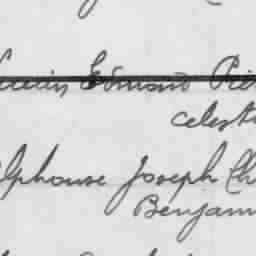 Edmond
Celest
Alphonse Joseph Ch
Benjam